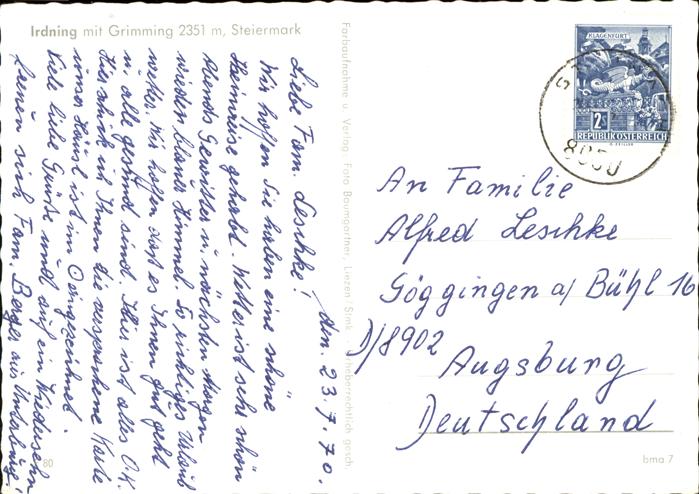 Irdning mit Grimming 2351 m, Steiermark
den. 23.7.70.
Liebe Fam. Leschke!
Wir hoffen Sie haben eine schöne
Heimreise gehabt. Wetter ist sehr schön
Abends Gewitter u. nächsten Morgen
wieder blauer Himmel. So richtiges Urlaub
wetter. Wir hoffen das es Ihnen gut geht
u. alle gesund sind. Hier ist alles O.K.
Hier schick ich Ihnen die versprochene Karte
unser Häusl ist im eingezeichnet.
Viele liebe Grüße und auf ein Wiedersehn
freuen sich Fam. Berger aus
80
Farbaufnahme u. Verlag: Foto Baumgartner, Liezen/Stmk. - Urheberrechtlich gesch.
KLAGENFURT
2 S
REPUBLIK ÖSTERREICH
8950
An Familie
Alfred Leschke
Göggingen a/ Bühl 16
D/8902
Augsburg
Deutschland
bma 7